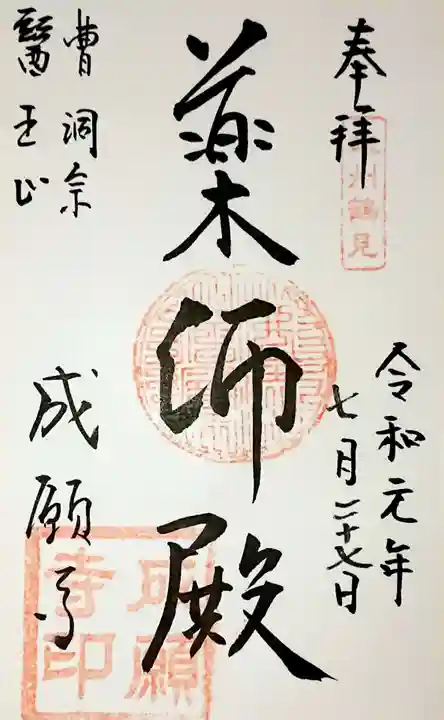 奉拝
州鶴見
令和元年
七月二十七日
薬師殿
曹洞宗
醫王山
成願寺
成願
寺印